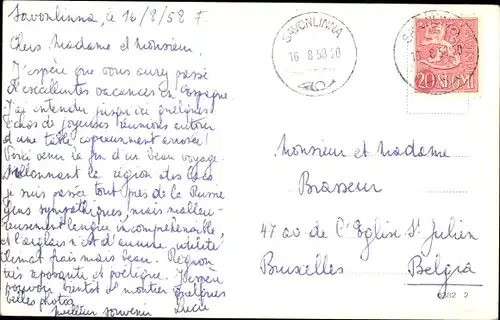 Savonlinna, le 16/8/58
Chers Madame et Monsieur,
J'espère que vous avez passé
d'excellentes vacances en Espagne.
J'ai entendu jusqu'ici quelques
échos de joyeuses réunions autour
d'une table copieusement arrosée!
Voici venir la fin d'un beau voyage.
Sillonnant la région des lacs
je suis passée tout près de la Russie
Gens sympathiques, mais malheu-
reusement langue incompréhensible,
et l'anglais n'est d'aucune utilité
Climat frais mais beau. Région
très reposante et poétique. J'espère
pouvoir bientôt vs montrer quelques
belles photos.
meilleur souvenir
Lucie
SAVONLINNA
16.8.58.20
SAVONLINNA
16.8.58.20
20 SUOMI
Monsieur et Madame
Brasseur
47 av de l'Eglise St Julien
Bruxelles
Belgia
6282 2